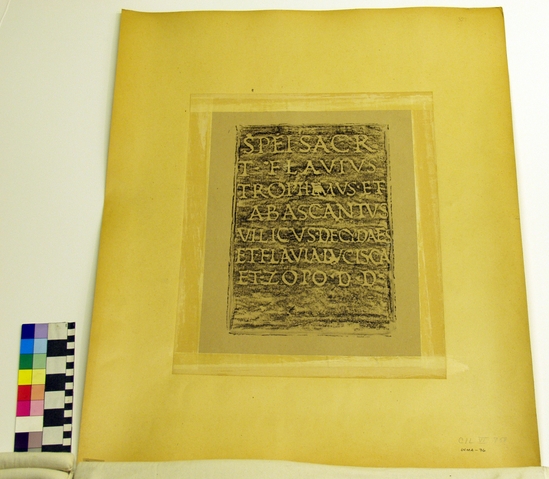 SPEI SACR
T FLAVIVS
TROPHIMVS·ET
ABASCANTVS
VILICVS·DEC·DAE
ET FLAVIA
ET·ZO D·D